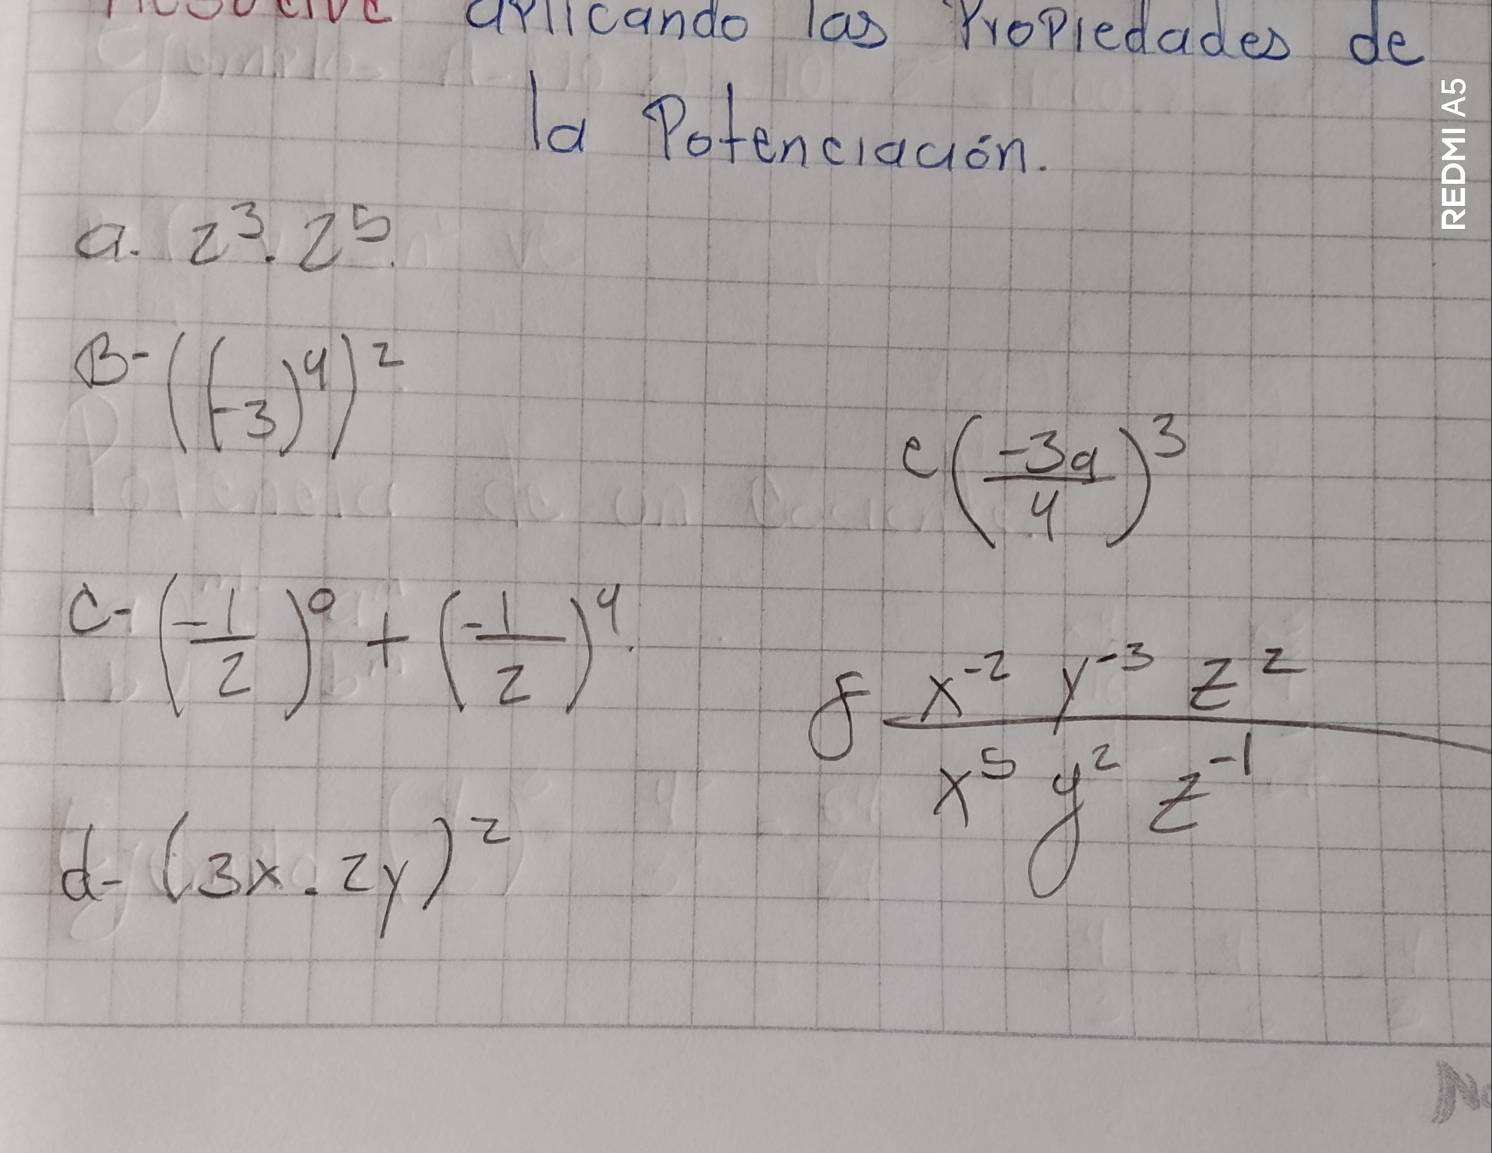 aplicando las Propiedades de
la Potenciación.
a. 2³. 2⁵.
B- ((-3)⁴)²
e (-3a/4)³
c- (-1/2)⁰ + (-1/2)⁴.
f x⁻² y⁻³ z² / x⁵ y² z⁻¹
d- (3x . 2y)²
REDMI A5